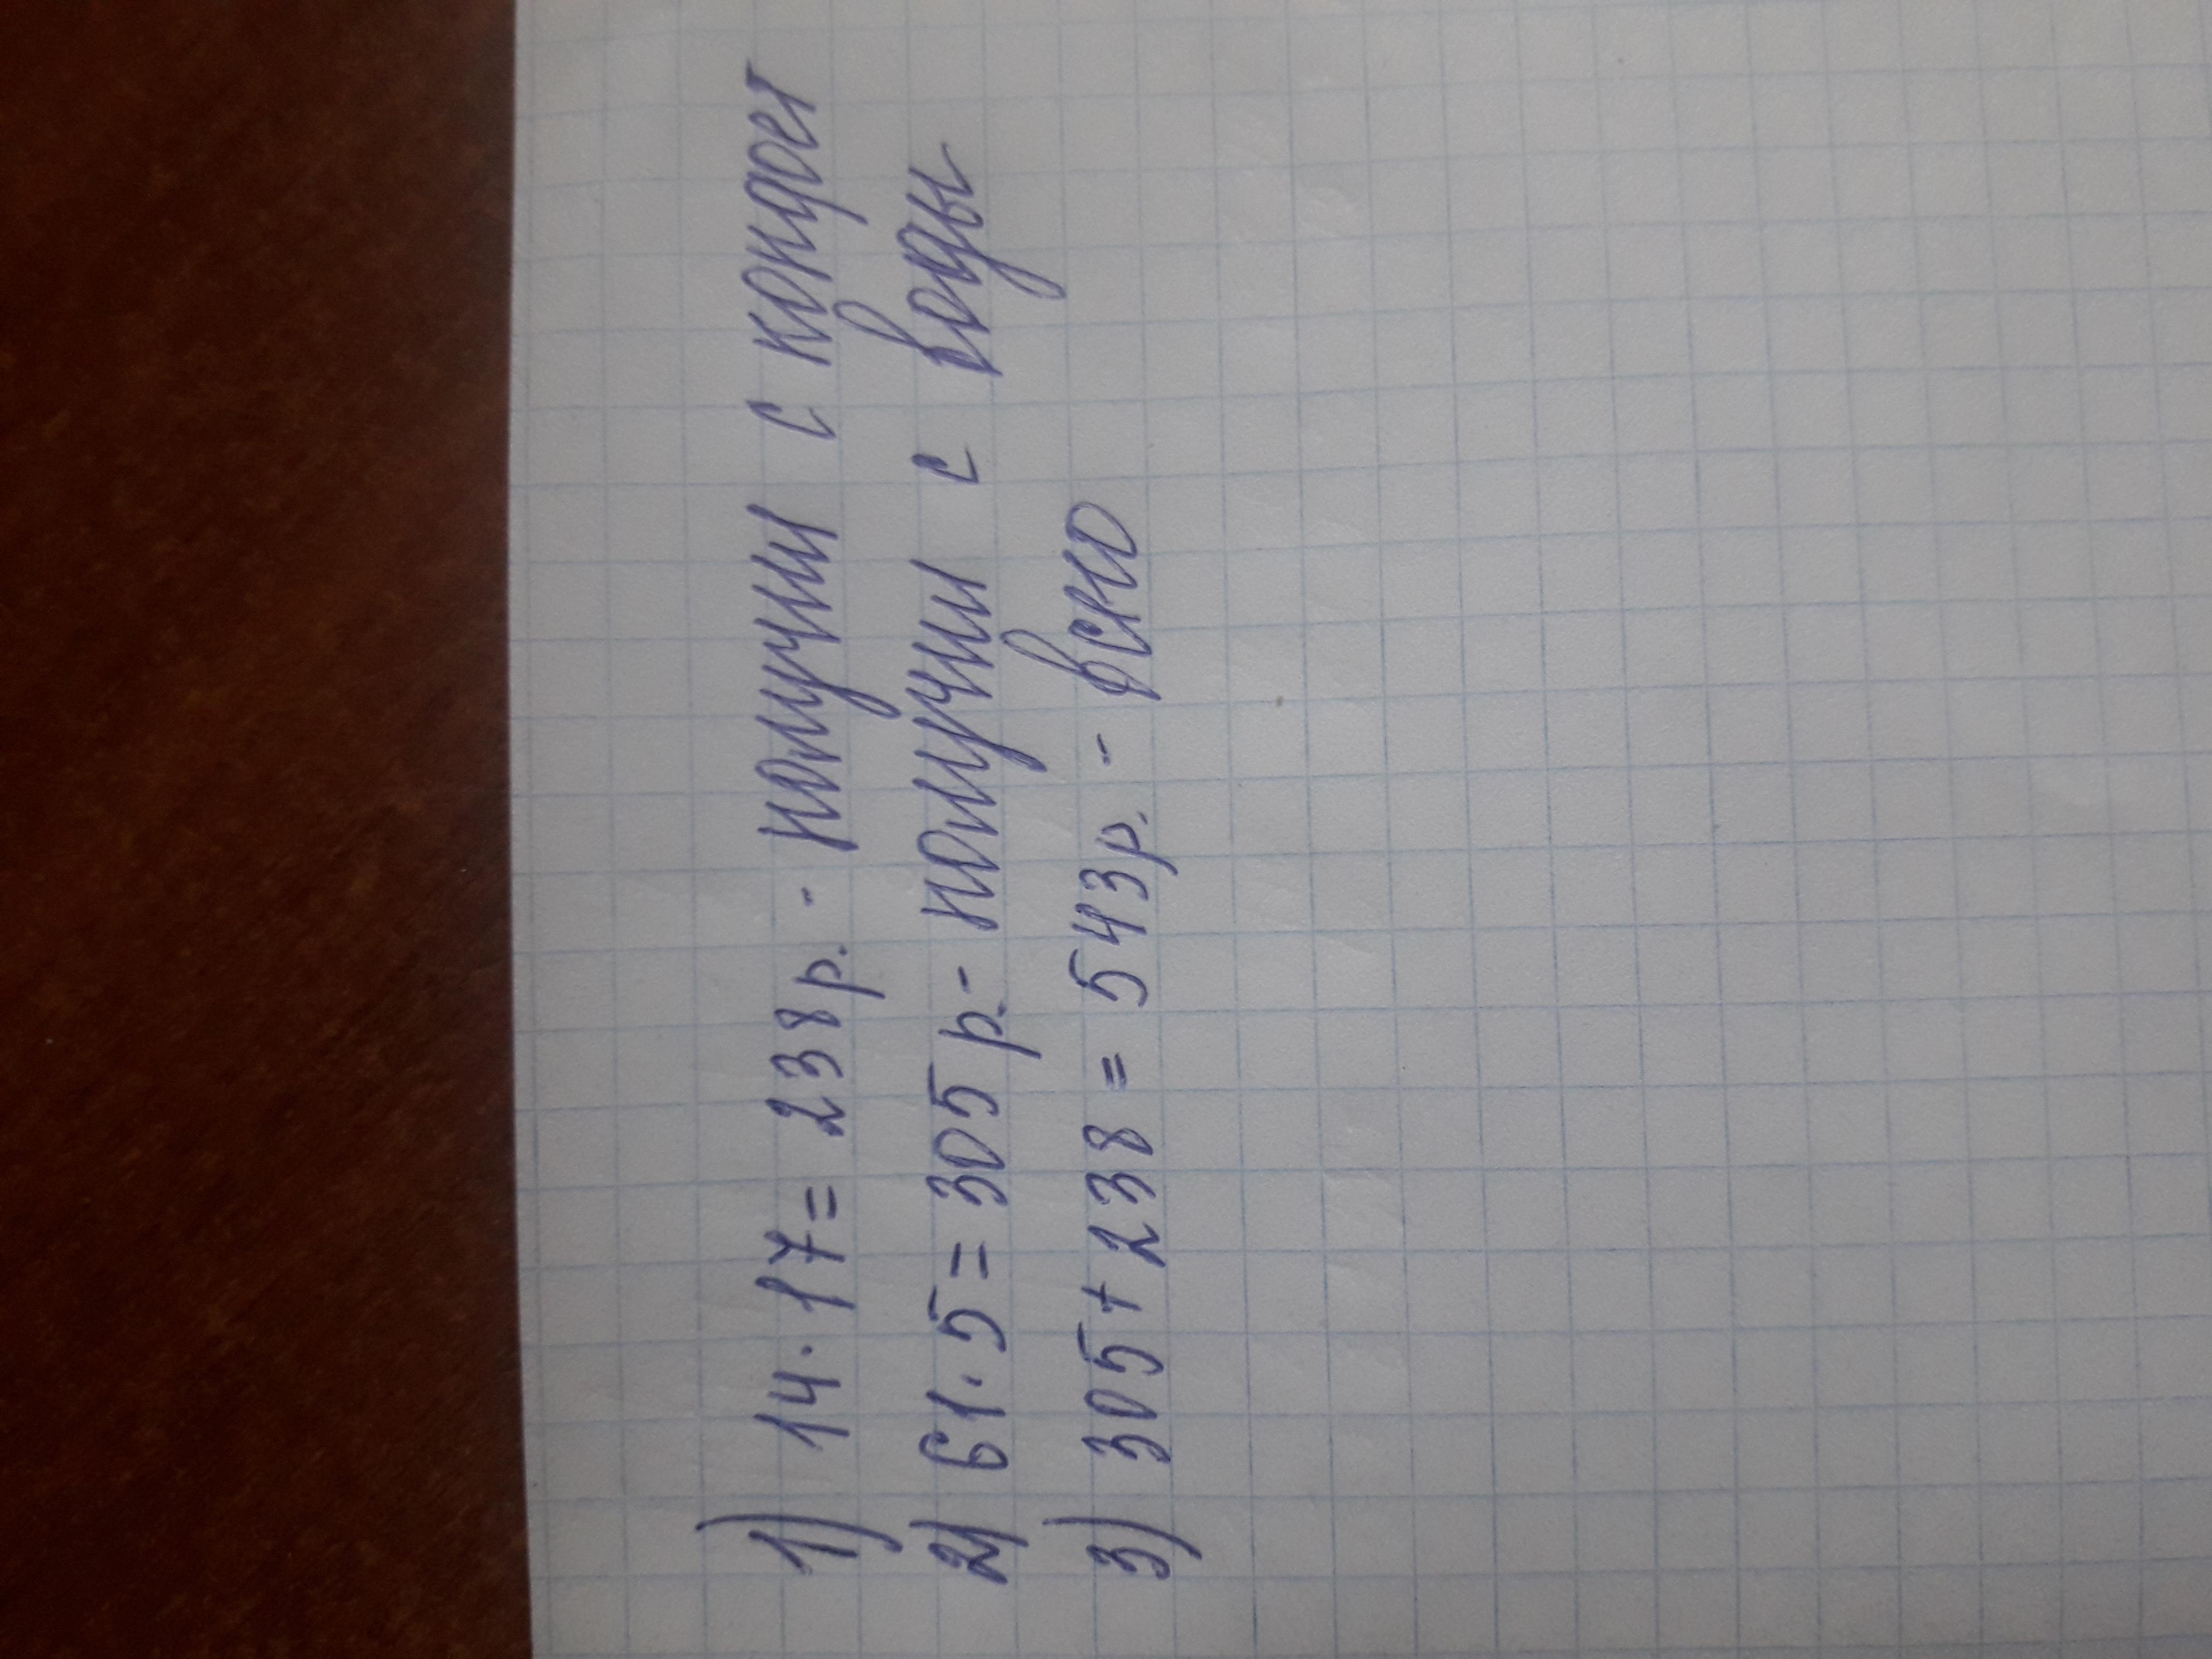 1) 14 · 17 = 238 р. - получили с конфет
2) 61 · 5 = 305 р. - получили с воды
3) 305 + 238 = 543 р. -